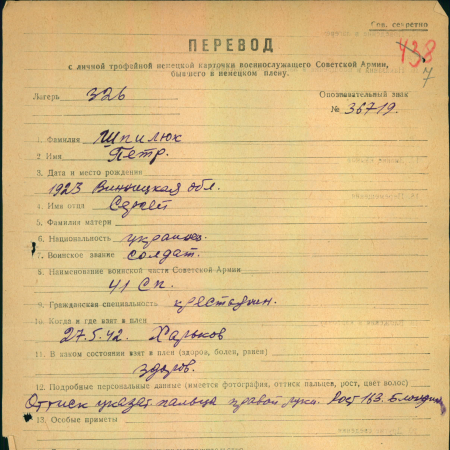 Сов. секретно
438
7
ПЕРЕВОД
с личной трофейной немецкой карточки военнослужащего Советской Армии,
бывшего в немецком плену.
Лагерь 326
Опознавательный знак
№ 36719.
1. Фамилия Шпилюк
2. Имя Петр.
3. Дата и место рождения
1923 Винницкая обл.
4. Имя отца
5. Фамилия матери
6. Национальность украинец.
7. Воинское звание солдат.
8. Наименование воинской части Советской Армии
41 СП.
9. Гражданская специальность крестьянин.
10. Когда и где взят в плен
27.5.42. Харьков
11. В каком состоянии взят в плен (здоров, болен, ранен)
здоров.
12. Подробные персональные данные (имеется фотография, оттиск пальцев, рост, цвет волос)
Оттиск указат. пальца правой руки. Рост 163. Блондин
13. Особые приметы